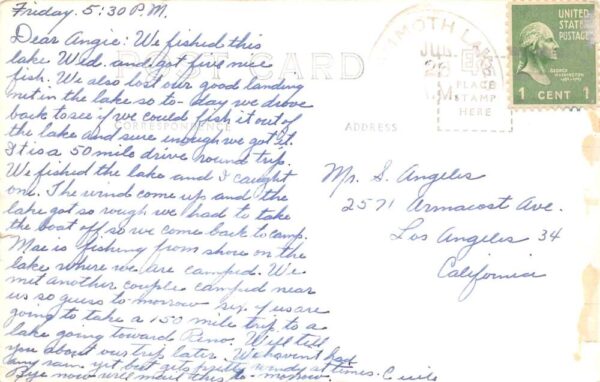 Friday. 5:30 P.M.
Dear Angie: We fished this
lake Wed. and got five nice
fish. We also lost our good landing
net in the lake so to-day we drove
back to see if we could fish it out of
the lake and sure enough we got it.
It is a 50 mile drive round trip.
We fished the lake and I caught
one. The wind come up and the
lake got so rough we had to take
the boat off so we come back to camp.
Mae is fishing from shore on the
lake where we are camped. We
met another couple camped near
us so guess to-morrow six of us are
going to take a 150 mile trip to a
lake going toward Reno. Will tell
you about our trip later. We haven't had
any rain yet but gets pretty windy at times.
Bye now will mail this to-morrow. Cecile
POST CARD
CORRESPONDENCE
ADDRESS
PLACE
STAMP
HERE
MOTH LAKES
JUL
UNITED
STATES
POSTAGE
GEORGE
WASHINGTON
1 CENT 1
Mr. S. Angeles
2571 Armacost Ave.
Los Angeles 34
California